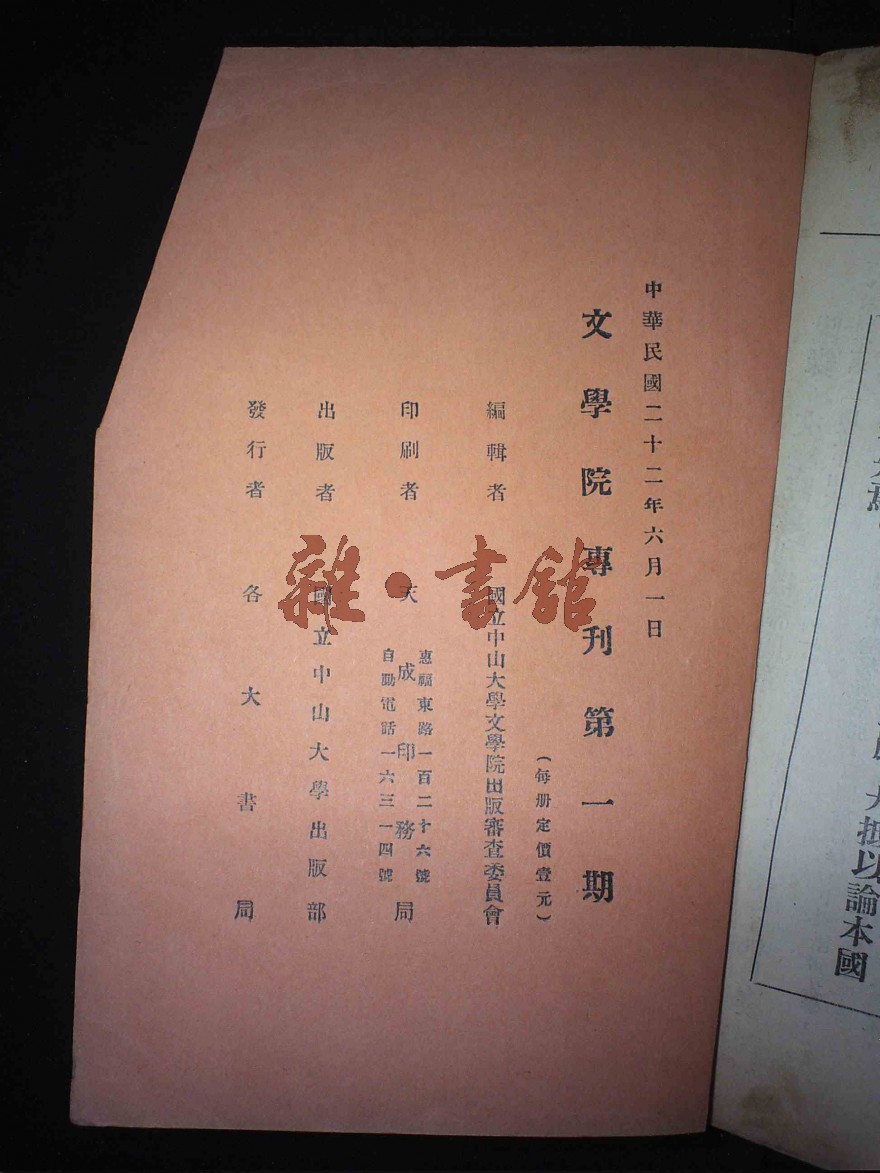 中華民國二十二年六月一日
文學院專刊第一期
（每册定價壹元）
編輯者 國立中山大學文學院出版審查委員會
印刷者 天成印務局
惠福東路一百二十六號
自動電話一六三一四號
出版者 國立中山大學出版部
發行者 各大書局
雜·書館
以論本國